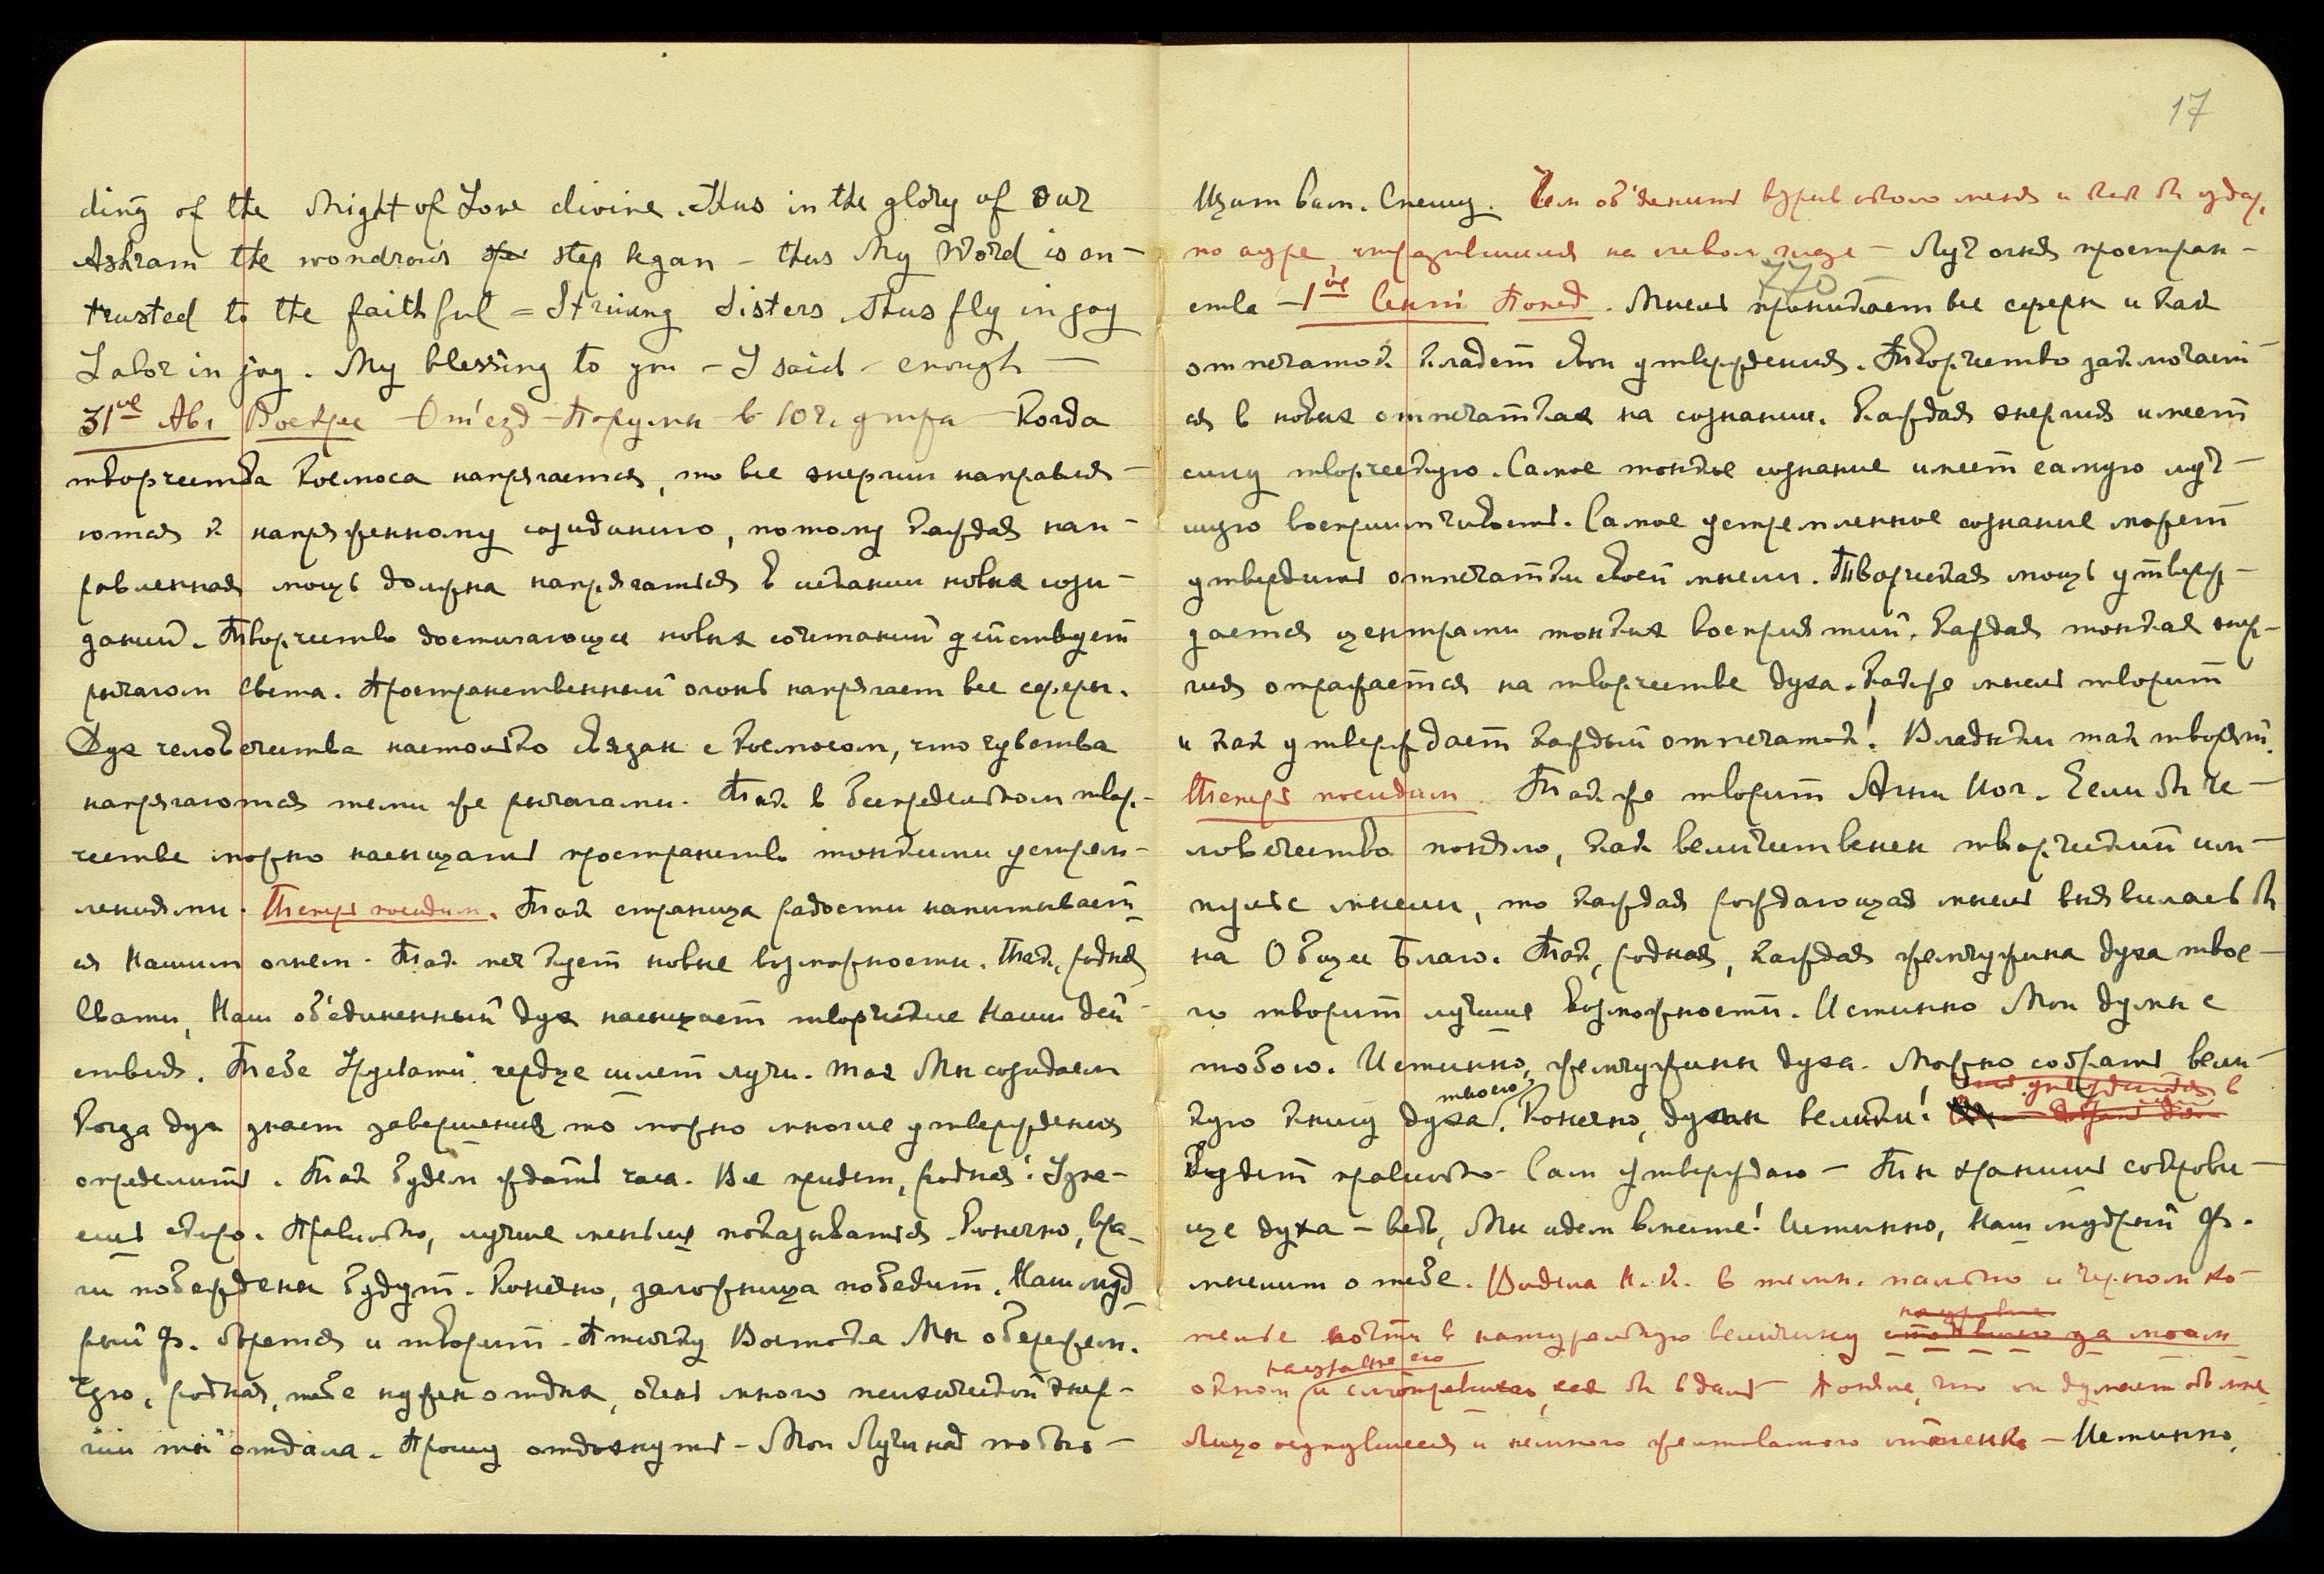 ding of the Might of Love divine. Thus in the glory of our
Ashram the wondrous step began – thus My Word is en-
trusted to the faithful = Striving Sisters. Thus fly in joy
Labor in joy. My blessing to you – I said – enough –
31ое Авг Воскрес – От'езд – Порумы в 10 ч. утра – Когда
творчества Космоса напрягается, то все энергии направля-
ются к напряженному созиданию, потому каждая нап-
равленная мощь должна напрягаться в искании новых сози-
даний. Творчество достигающее новых сочетаний действует
рычагом Света. Пространственный огонь напрягает все сферы.
Дух человечества настолько связан с Космосом, что чувства
напрягаются теми же рычагами. Так в беспредельном твор-
честве можно насыщать пространство тонкими устрем-
лениями. Теперь посидим. Так страница радости напитывает-
ся Нашим огнем. Так, родная
Свати, Наш об'единенный дух насыщает творческие Наши дей-
ствия. Тебе Урусвати сердце шлет лучи. Так Мы созидаем
Когда дух знает завершения то можно многие утверждения
определить. Так будем ждать часа. Все придет, родная! Узна-
ешь скоро. Правильно, лучше меньше показываться. Конечно, вра-
ги побеждены будут. Конечно, заложница победит. Наш муд-
рый Ф. борется и творит. Птичку Востока Мы обережем.
Чую, родная, тебе нужен отдых, очень много психической энер-
гии ты отдала. Прошу отдохнуть – Мои Лучи над тобою –
17
Щит вам. Спешу. Чем об'яснить взрыв около меня и как бы удар,
по ауре, отразившийся на левом глазе – Луч огня простран-
770
ства – 1ое Сент Понед. Мысль проникает все сферы и как
отпечаток кладет свои утверждения. Творчество заключает-
ся в новых отпечатках на сознании. Каждая энергия имеет
силу творческую. Самое тонкое сознание имеет самую луч-
шую восприимчивость. Самое устремленное сознание может
утвердить отпечатки своей мысли. Творческая мощь утверж-
дается центрами тонких восприятий. Каждая тонкая энер-
гия отражается на творчестве духа. Также мысль творит
и как утверждает каждый отпечаток! Владыки так творят.
Теперь посидим. Так же творит Агни Йог. Если бы че-
ловечество поняло, как величественен творческий им-
пульс мысли, то каждая рождающая мысль выявилась бы
на Общее Благо. Так, родная, каждая жемчужина духа твое-
го творит лучшие возможности. Истинно Мои думы с
тобою. Истинно, жемчужины духа. Можно собрать вели-
кую книгу духа твоего. Конечно, духи велики!
Будет правильно – Сам утверждаю – Ты хранишь сокрови-
ще духа – ведь, Мы идем вместе! Истинно, Наш мудрый Ф.
мыслит о тебе. Видела Н.К. в темн. пальто и черном ко-
телке почти в натуральную величину за моим
окном и смотревшего, как бы вдаль – Поняла, что он думает обо мне
Лицо осунувшееся и немного желтоватого оттенка – Истинно,